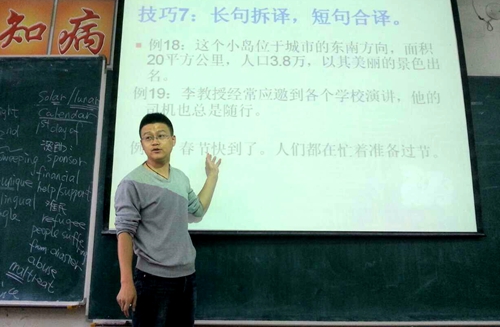 知病
技巧7：长句拆译，短句合译。
例18：这个小岛位于城市的东南方向，面积
20平方公里，人口3.8万，以其美丽的景色出
名。
例19：李教授经常应邀到各个学校演讲，他的
司机也总是随行。
例 春节快到了。人们都在忙着准备过节。
Solar/lunar
Calendar
1st day of
sweeping sponsor
financial
unique help support
lingual
难民
refugees
people suffer
from disaster
abuse
maltreat